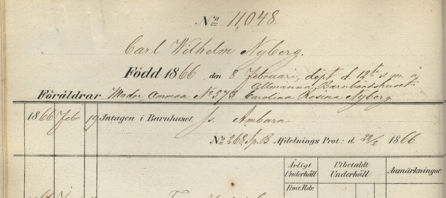 No 11,048.
Carl Wilhelm Nyberg.
Född 1866 den 8 Februari, döpt d. 12te s. m. i
Allmänna Barnbördshuset
Föräldrar Moder Amman No 573 Carolina Rosina Nyberg
1866 Feb 19 Intagen i Barnhuset s. Ambarn
No 268 Afdelnings Prot: d. 22/2 1866
Årligt Underhåll
Utbetaldt Underhåll
Anmärkningar
Rmt. Rdr.